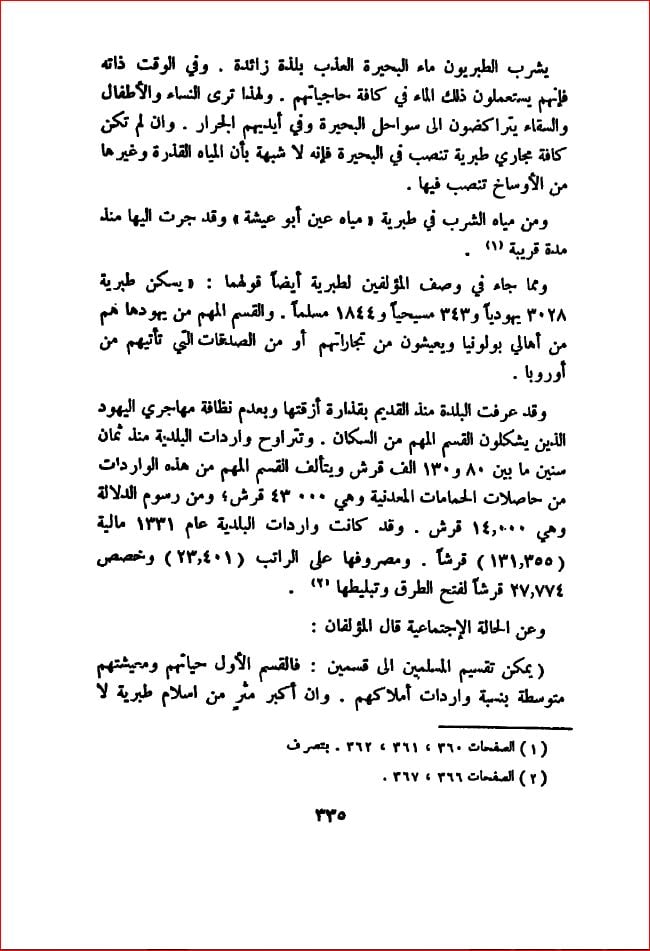 يشرب الطبريون ماء البحيرة العذب بلذة زائدة . وفي الوقت ذاته
فإنهم يستعملون ذلك الماء في كافة حاجياتهم . ولهذا ترى النساء والأطفال
والسقاء يتراكضون الى سواحل البحيرة وفي أيديهم الجرار . وان لم تكن
كافة مجاري طبرية تنصب في البحيرة فإنه لا شبهة بأن المياه القذرة وغيرها
من الأوساخ تنصب فيها .
ومن مياه الشرب في طبرية « مياه عين أبو عيشة » وقد جرت اليها منذ
مدة قريبة (١) .
ومما جاء في وصف المؤلفين لطبرية أيضاً قولهما : « يسكن طبرية
٣٠٢٨ يهودياً و٣٤٣ مسيحياً و١٨٤٤ مسلماً . والقسم المهم من يهودها هم
من أهالي بولونيا ويعيشون من تجاراتهم أو من الصدقات التي تأتيهم من
أوروبا .
وقد عرفت البلدة منذ القديم بقذارة أزقتها وبعدم نظافة مهاجري اليهود
الذين يشكلون القسم المهم من السكان . وتتراوح واردات البلدية منذ ثمان
سنين ما بين ٨٠ و١٣٠ الف قرش ويتألف القسم المهم من هذه الواردات
من حاصلات الحمامات المعدنية وهي ٤٣٠٠٠ قرش؛ ومن رسوم الدلالة
وهي ١٤,٠٠٠ قرش . وقد كانت واردات البلدية عام ١٣٣١ مالية
( ١٣١,٣٥٥ ) قرشاً . ومصروفها على الراتب ( ٢٣,٤٠١ ) وخصص
٢٧,٧٧٤ قرشاً لفتح الطرق وتبليطها (٢) .
وعن الحالة الإجتماعية قال المؤلفان :
( يمكن تقسيم المسلمين الى قسمين : فالقسم الأول حياتهم ومعيشتهم
متوسطة بنسبة واردات أملاكهم . وان أكبر مثرٍ من اسلام طبرية لا
( ١ ) الصفحات ٣٦٠ ، ٣٦١ ، ٣٦٢ . بتصرف
( ٢ ) الصفحات ٣٦٦ ، ٣٦٧ .
٣٣٥